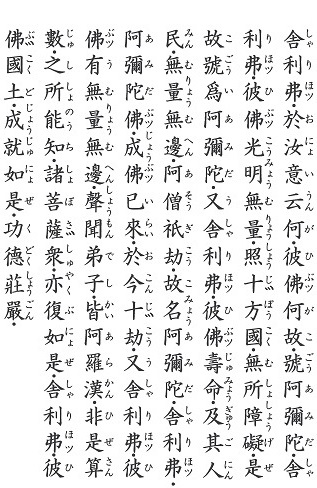 舍利弗・於汝意云何・彼佛何故・號阿彌陀・舍
利弗・彼佛光明無量・照十方國・無所障礙・是
故號爲阿彌陀・又舍利弗・彼佛壽命・及其人
民・無量無邊・阿僧祇劫・故名阿彌陀・舍利弗・
阿彌陀佛・成佛已來・於今十劫・又舍利弗・彼
佛有無量無邊・聲聞弟子・皆阿羅漢・非是算
數・之所能知・諸菩薩衆・亦復如是・舍利弗・彼
佛國土・成就如是・功德莊嚴・